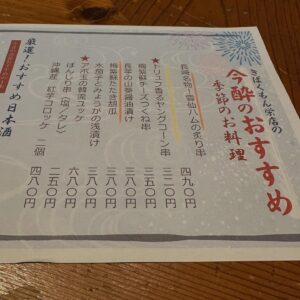 きばくもん栄店の
今酔のおすすめ
季節のお料理
長崎名物!雲仙ハムの炙り串 四九〇
★トリュフ香るヤングコーン串 三二〇
梅紫蘇チーズつくね串 三五〇
長芋の山葵醤油漬け 三八〇
梅紫蘇たたき胡瓜 三八〇
水茄子とみょうがの浅漬け 三八〇
★アボ玉の韓国ユッケ 六八〇
ぼんじり串(塩/タレ) 二五〇
沖縄産 紅芋コロッケ 二個 四八〇
厳選!おすすめ日本酒